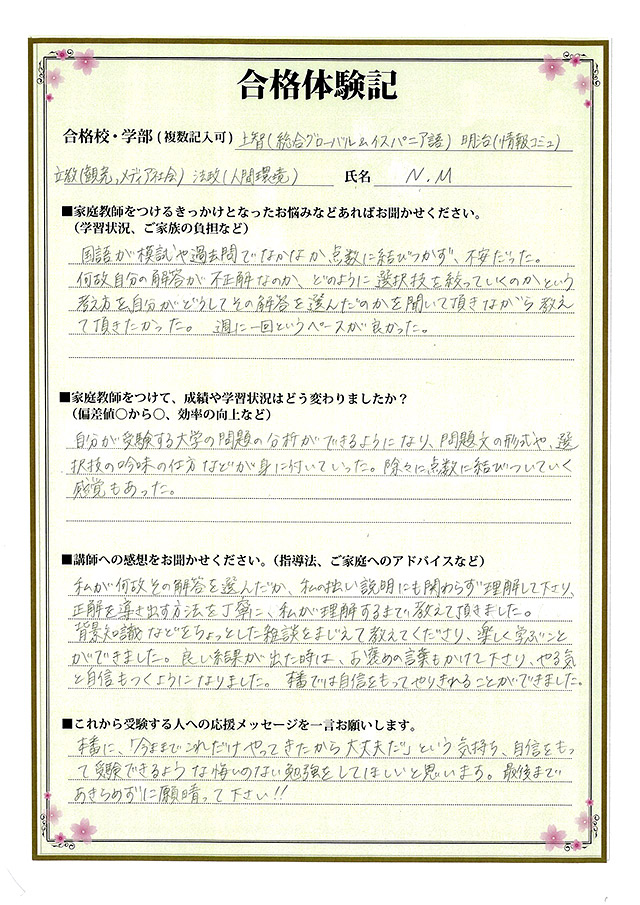 合格体験記
合格校・学部(複数記入可) 上智(総合グローバル,イスパニア語) 明治(情報コミュ)
立教(観光,メディア社会) 法政(人間環境) 氏名 N.M
■家庭教師をつけるきっかけとなったお悩みなどあればお聞かせください。
(学習状況、ご家族の負担など)
国語が模試や過去問でなかなか点数に結びつかず、不安だった。
何故自分の解答が不正解なのか、どのように選択技を絞っていくのかという
考え方を、自分がどうしてその解答を選んだのかを聞いて頂きながら教え
て頂きたかった。 週に一回というペースが良かった。
■家庭教師をつけて、成績や学習状況はどう変わりましたか?
(偏差値○から○、効率の向上など)
自分が受験する大学の問題の分析ができるようになり、問題文の形式や、選
択技の吟味の仕方などが身に付いていった。除々に点数に結びついていく
感覚もあった。
■講師への感想をお聞かせください。(指導法、ご家庭へのアドバイスなど)
私が何故その解答を選んだか、私の拙い説明にも関わらず理解して下さり、
正解を導き出す方法を丁寧に、私が理解するまで教えて頂きました。
背景知識などをちょっとした雑談をまじえて教えてくださり、楽しく学ぶこと
ができました。良い結果が出た時は、お褒めの言葉もかけて下さり、やる気
と自信もつくようになりました。 本番では自信をもってやりきれることができました。
■これから受験する人への応援メッセージを一言お願いします。
本番に、「今までこれだけやってきたから大丈夫だ」という気持ち、自信をもっ
て受験できるような悔いのない勉強をしてほしいと思います。最後まで
あきらめずに願晴って下さい!!